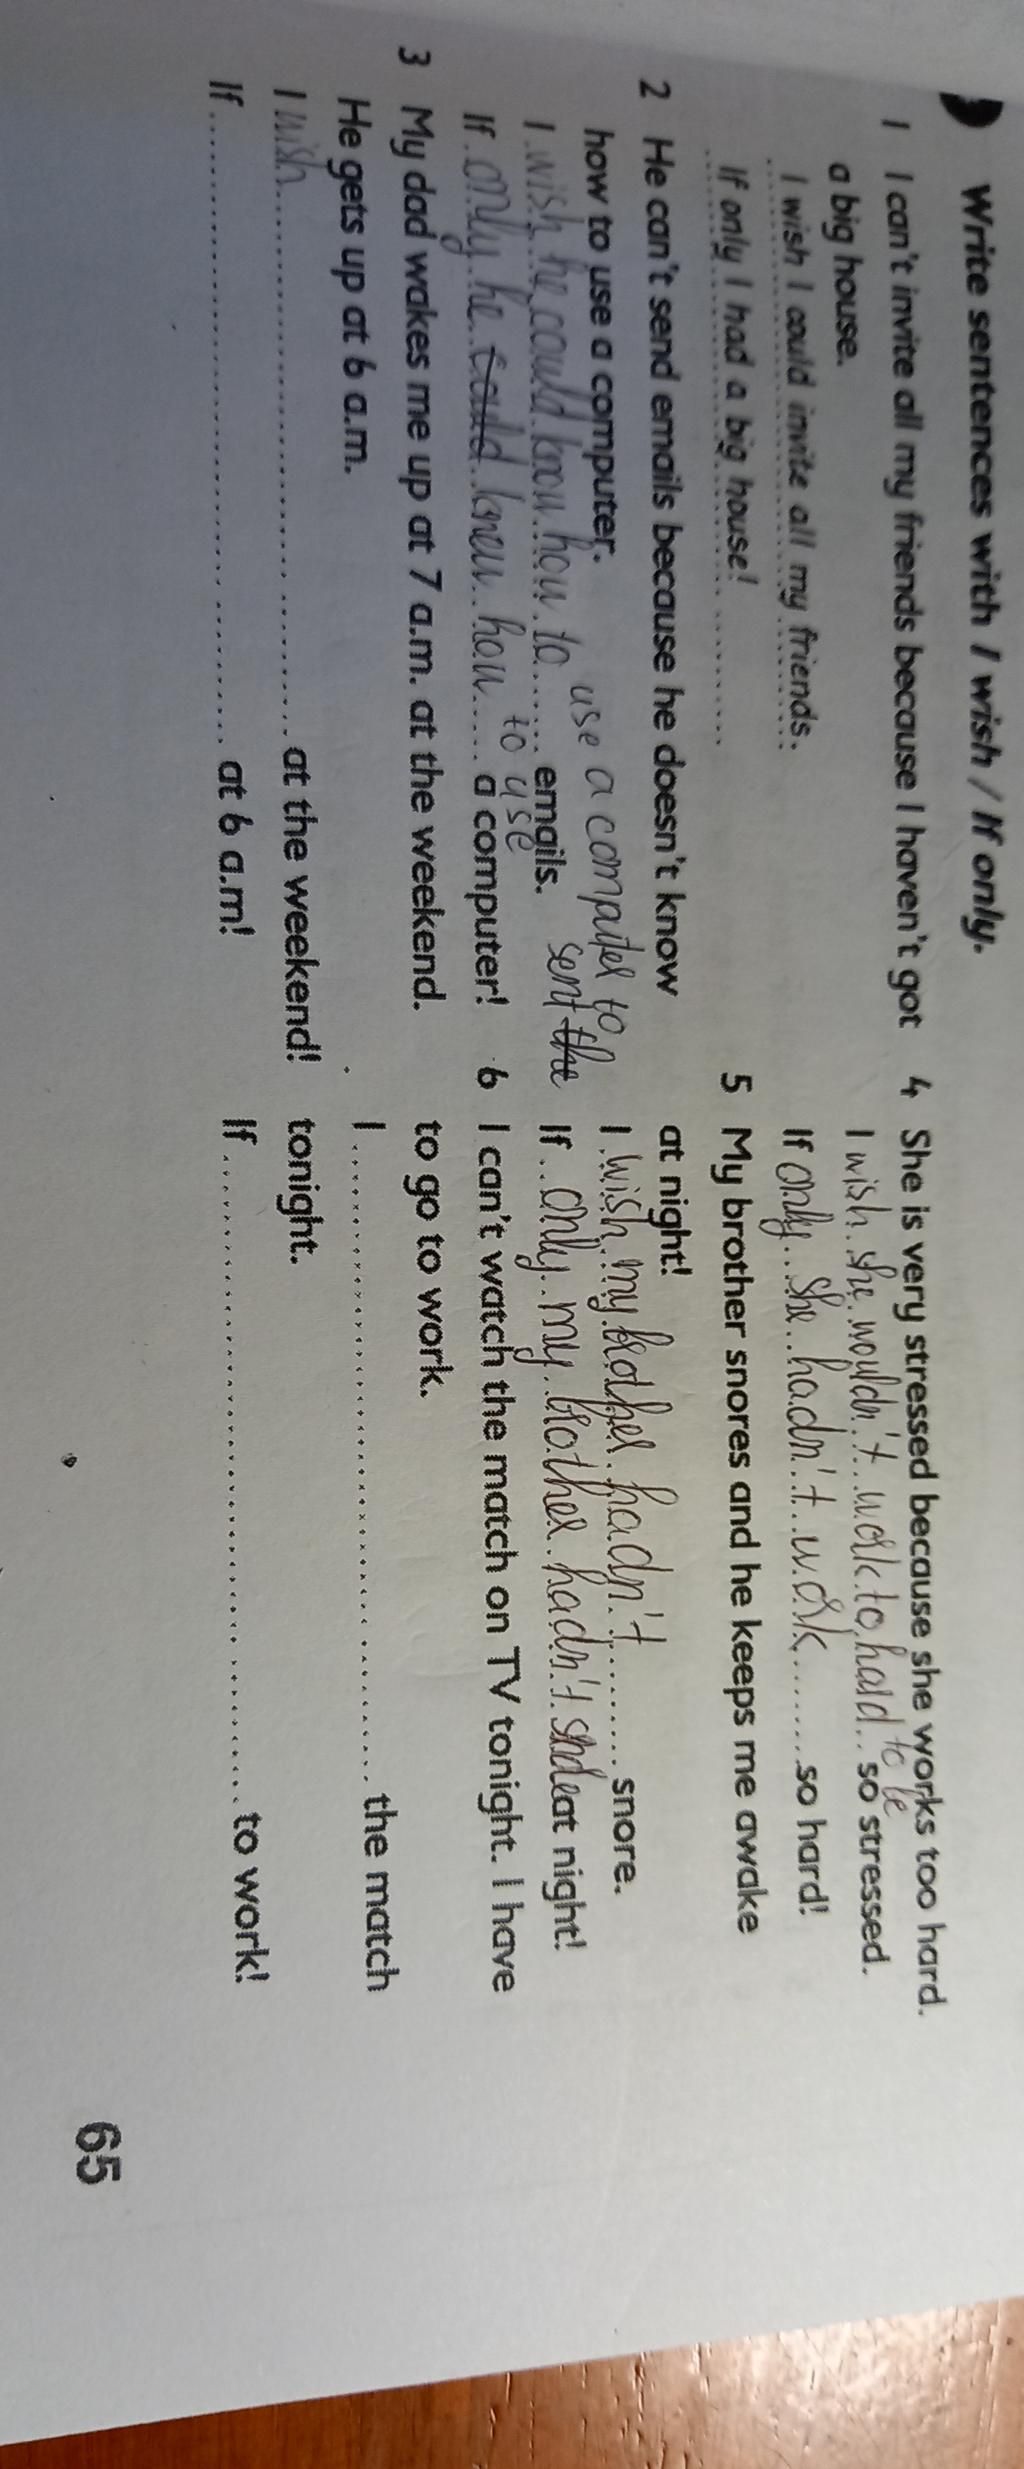 Write sentences with I wish / If only.
1 I can't invite all my friends because I haven't got
a big house.
I wish I could invite all my friends.
If only I had a big house!
2 He can't send emails because he doesn't know
how to use a computer.
use a computer to
I wish he could know how to emails.
sent the
If only he could knew how a computer!
to use
3 My dad wakes me up at 7 a.m. at the weekend.
He gets up at 6 a.m.
I wish at the weekend!
If at 6 a.m!
4 She is very stressed because she works too hard.
to be
I wish she wouldn't work to hard so stressed.
If only she hadn't work so hard!
5 My brother snores and he keeps me awake
at night!
I wish my brother hadn't snore.
If only my brother hadn't at night!
6 I can't watch the match on TV tonight. I have
to go to work.
I the match
tonight.
If to work!
65